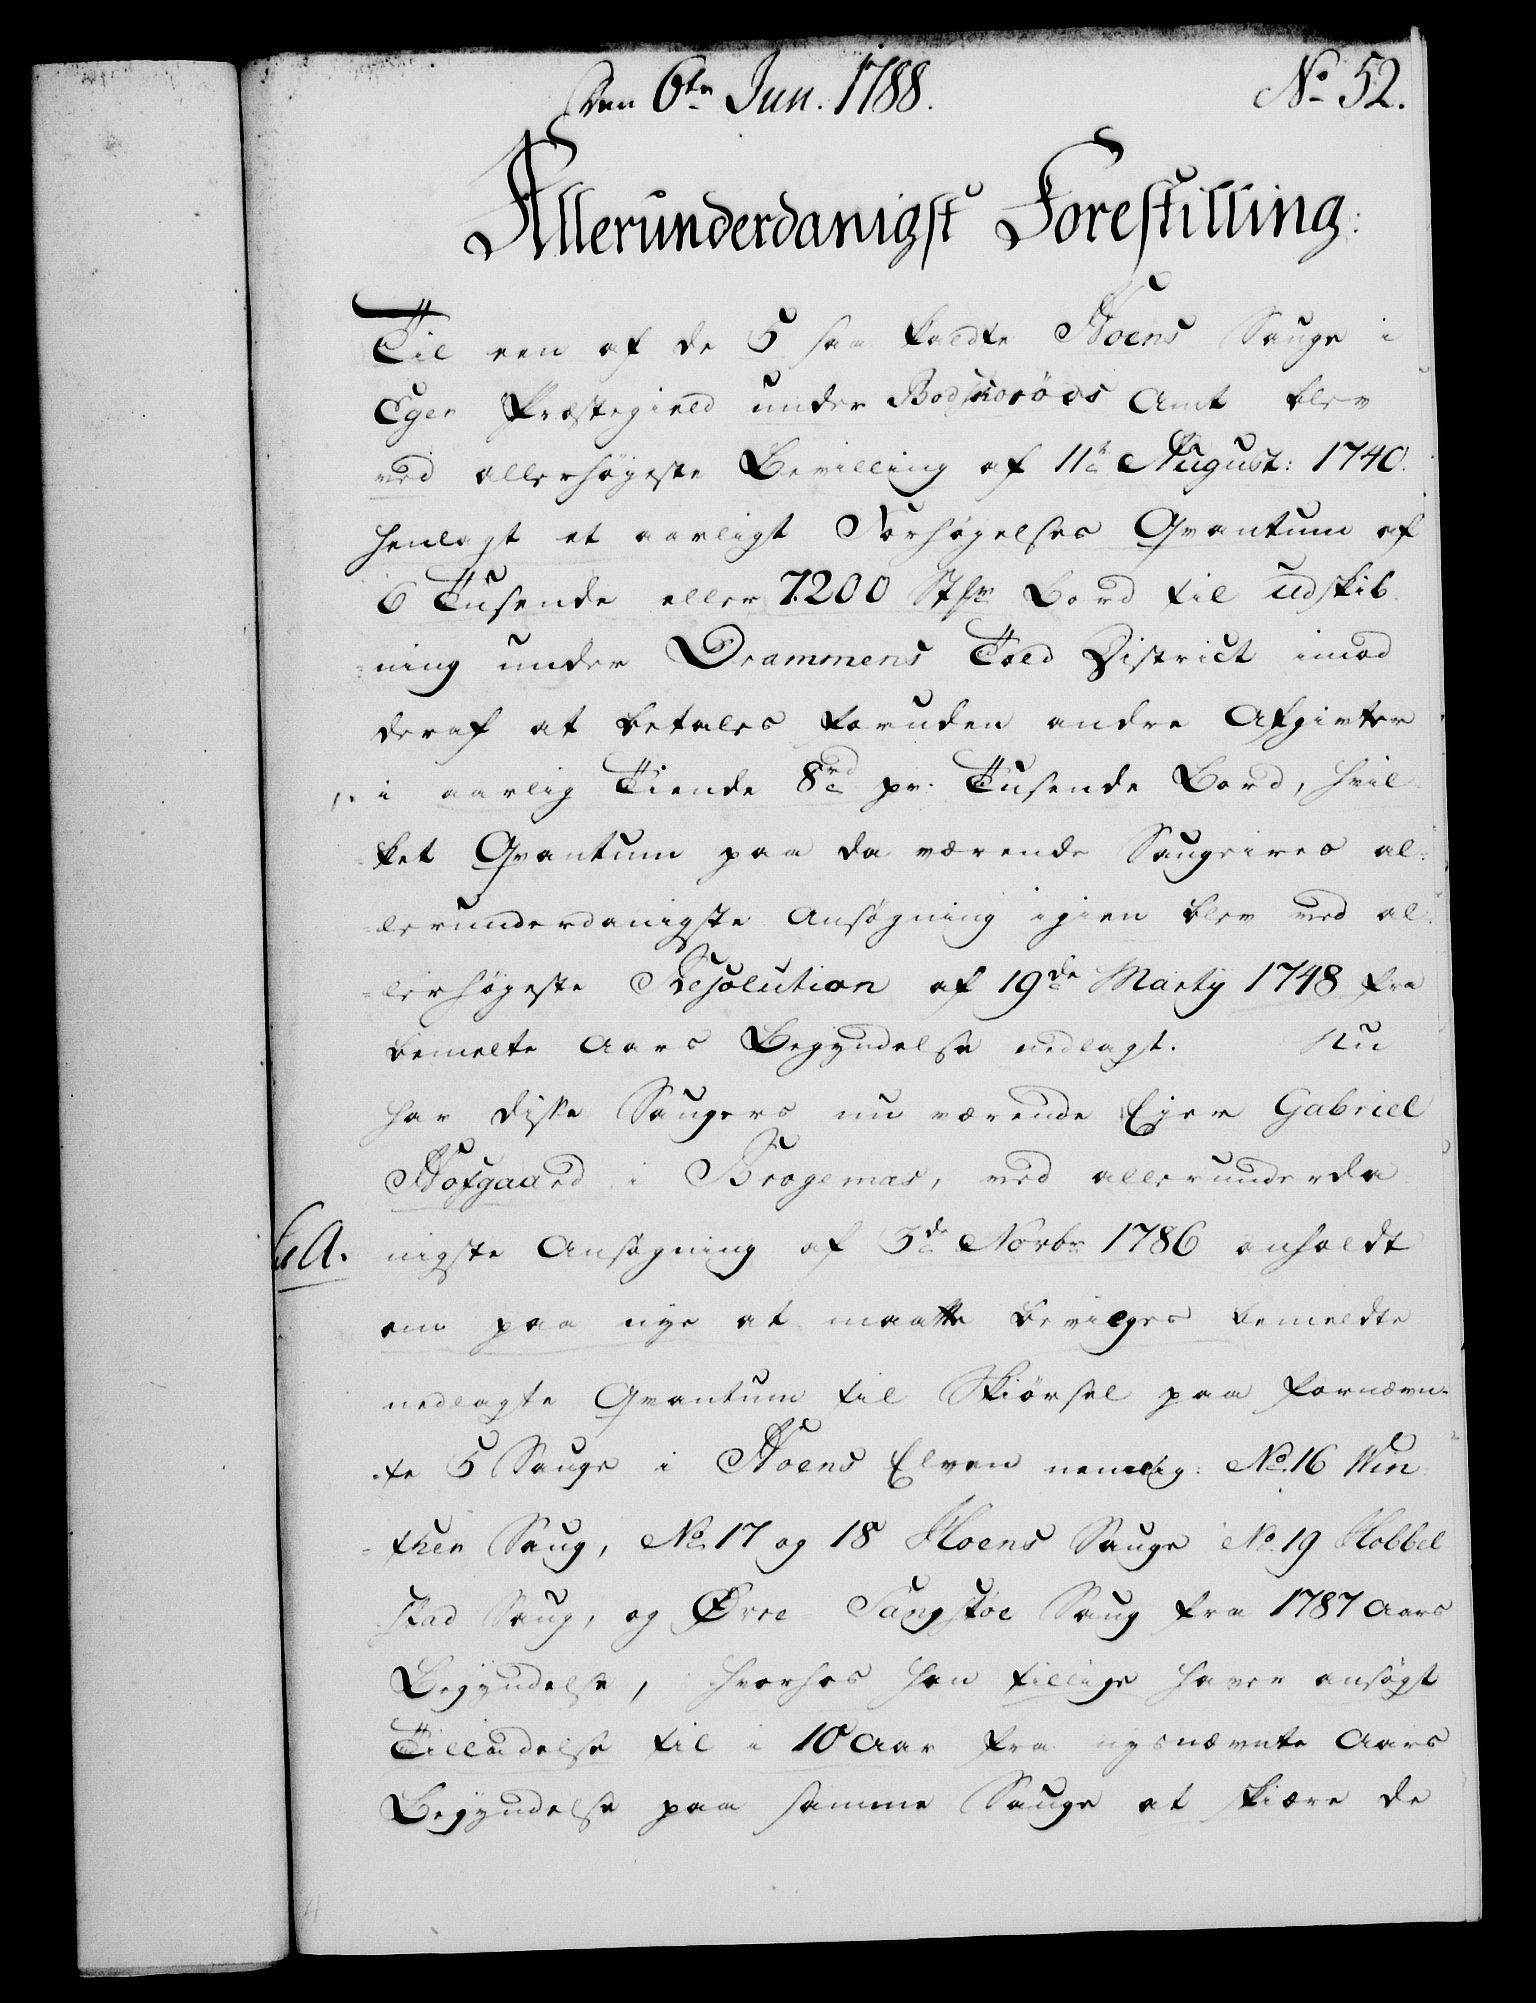 Den 6te Jun. 1788.
No 52.
Allerunderdanigst Forestilling:
Til een af de 5 saa kaldte Hoens Sauge i
Eger Præstegield under Bodskoröds Amt blev
ved allerhøyeste Bevilling af 11te August: 1740.
henlagt et aarligt Forhøyelses Qvantum af
6 Tusende eller 7200 Stkr Bord til udskib
-ning under Drammens Told District imod
deraf at betales foruden andre Afgivter
i aarlig Tiende 8rd pr. Tusende Bord, hvil
-ket Qvantum paa da værende Saugeires al-
-lerunderdanigste Ansøgning igien blev ved al-
-lerhøyeste Resolution af 19de Marty 1748 fra
bemelte Aars Begyndelse nedlagt. Nu
har disse Saugers nu værende Ejer Gabriel
Hofgaard i Bragernæs, ved allerunderda
LA. nigste Ansøgning af 3de Novbr 1786 anholdt
om paa nye at maatte bevilges bemeldte
nedlagte Qvantum til Skiørsel paa fornævn-
-te 5 Sauge i Hoens Elven nemlig: No. 16 Win
-ther Saug, No. 17 og 18 Hoens Sauge No. 19 Hobbel
-stad Saug, og Øvre Sangstøe Saug fra 1787 Aars
Begyndelse, hvorhos han tillige haver ansøgt
Tilladelse til i 10 Aar fra nysnævnte Aars
Begyndelse paa samme Sauge at skiære de